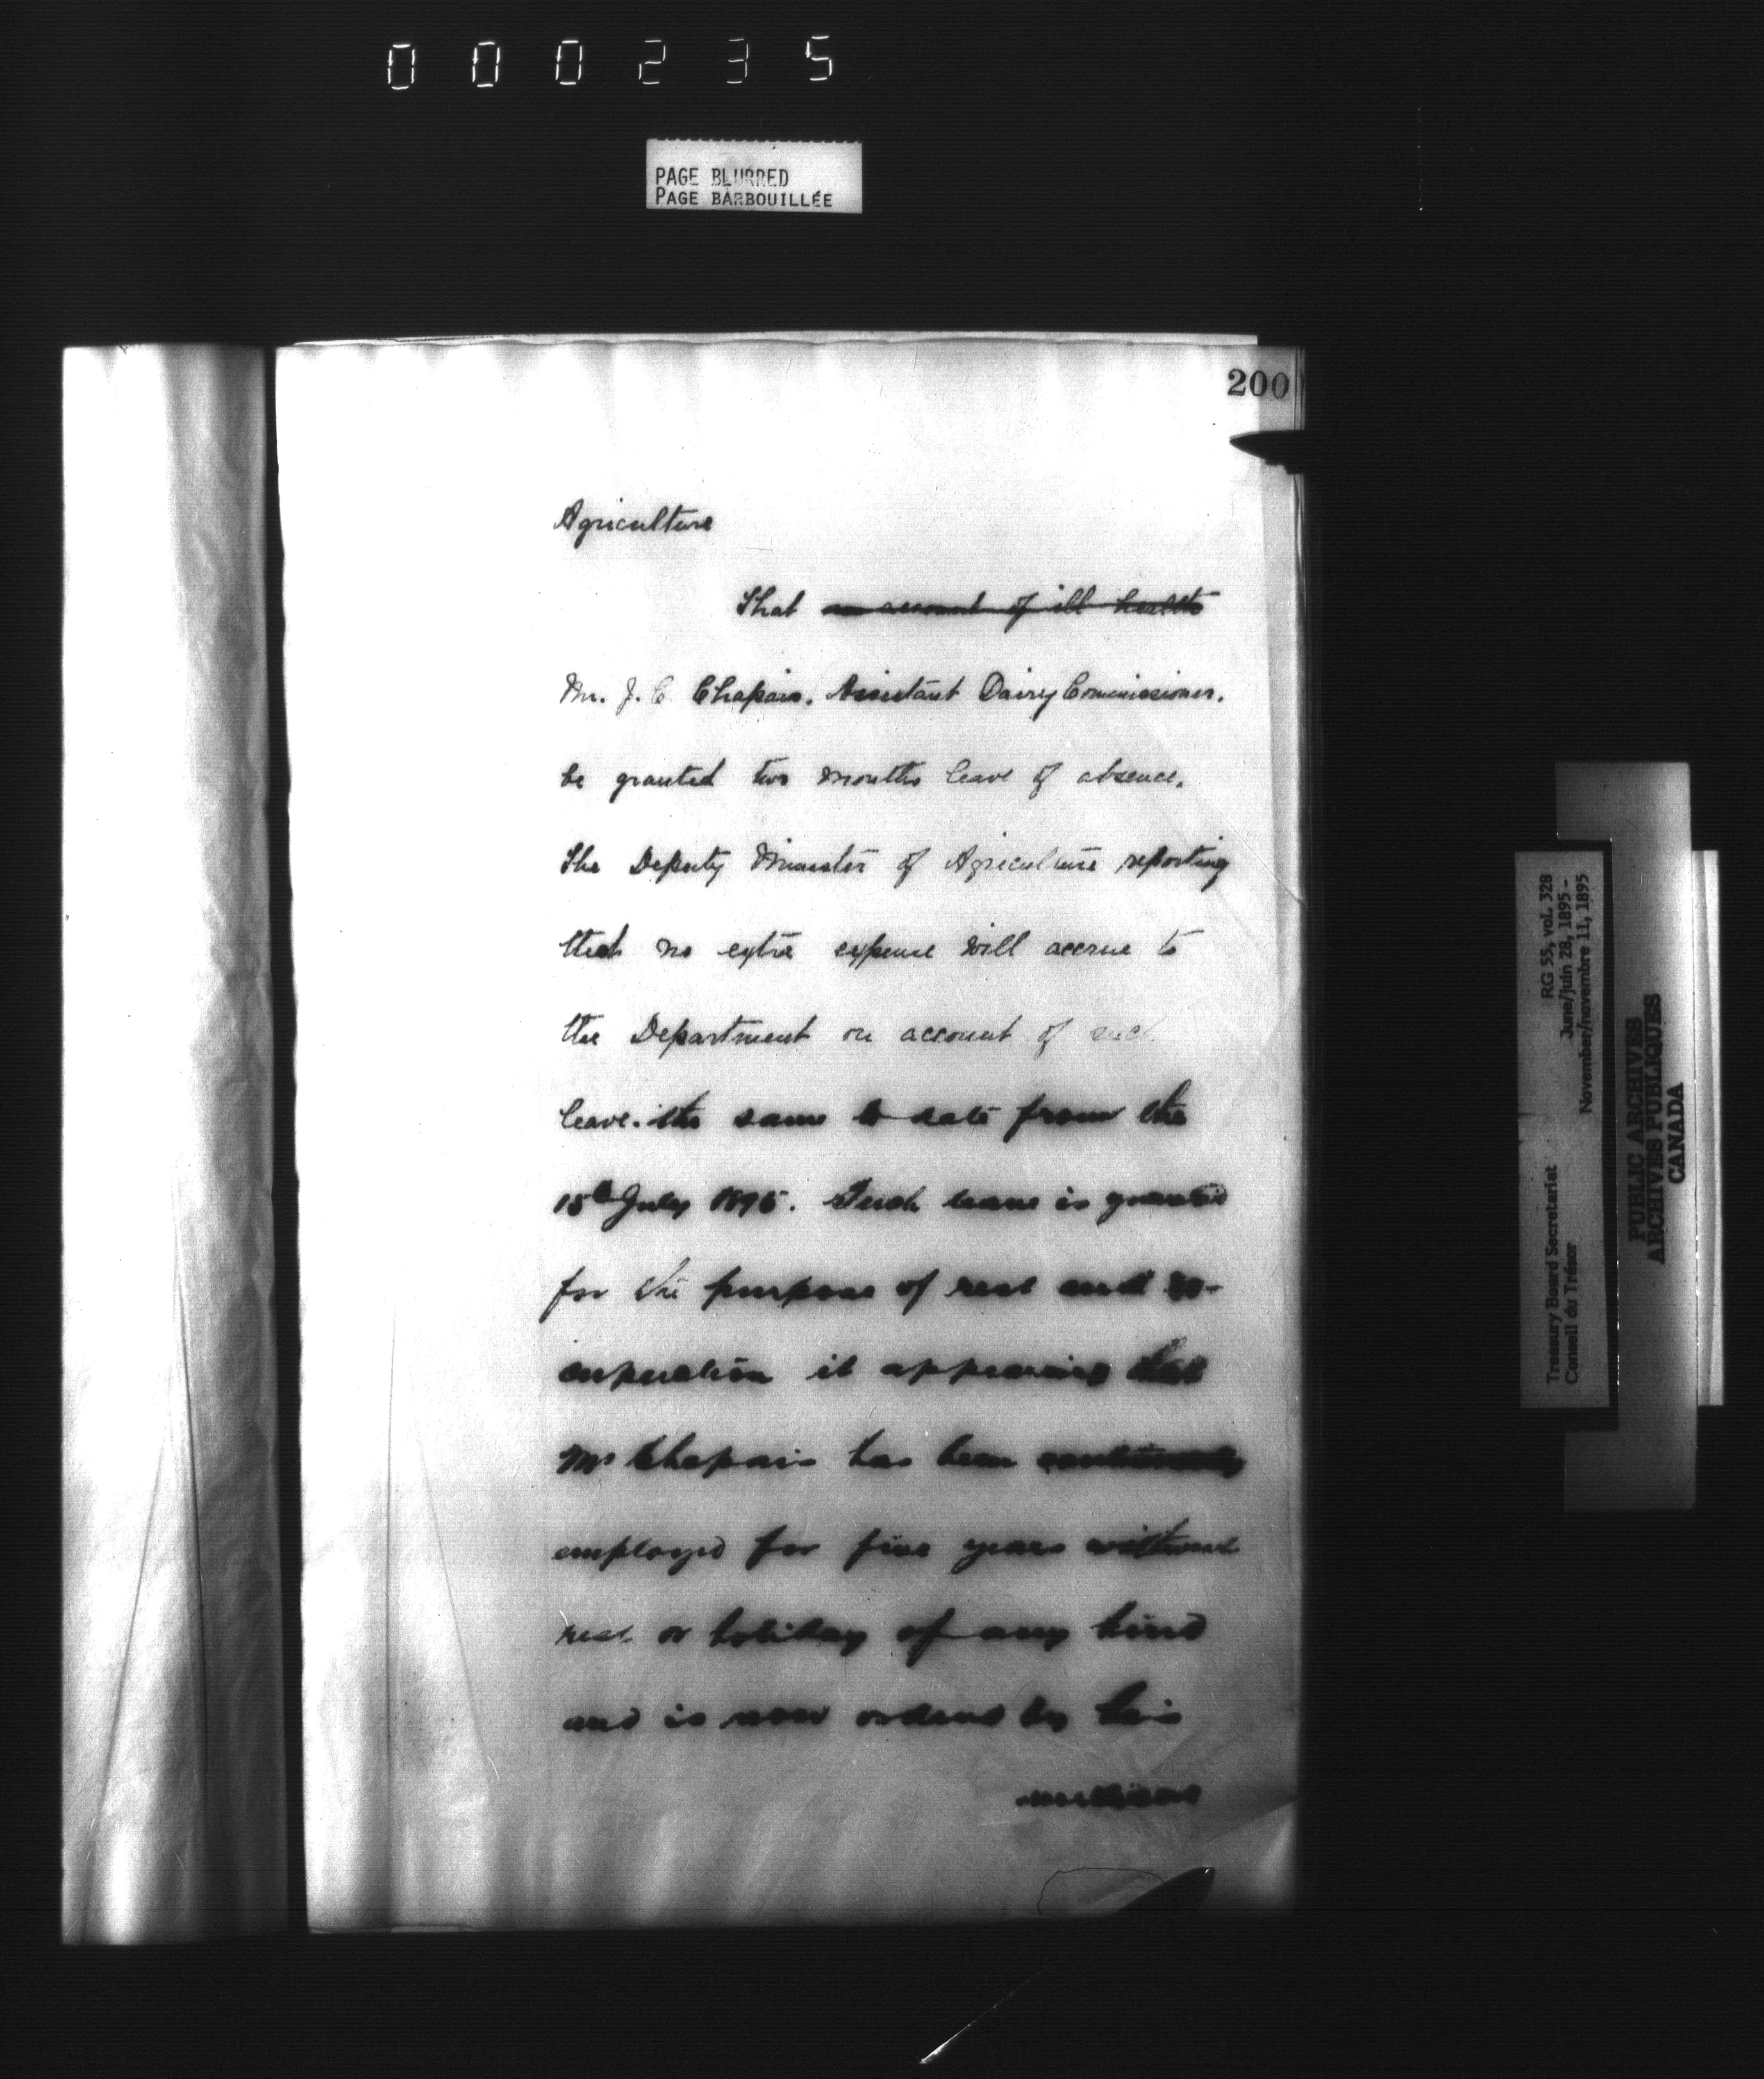 000235
PAGE BLURRED
PAGE BARBOUILLÉE
200
Agriculture
That on account of ill health
Mr. J. C. Chapais. Assistant Dairy Commissioner.
be granted two months leave of absence.
The Deputy Minister of Agriculture reporting
that no extra expense will accrue to
the Department on account of such
leave. the same to date from the
15th July 1895. Such leave is granted
for the purpose of rest and re-
cuperation it appearing that
Mr Chapais has been continuously
employed for five years without
rest or holiday of any kind
and is now ordered by his
RG 55, vol. 328
June/juin 28, 1895 -
November/novembre 11, 1895
Treasury Board Secretariat
Conseil du Trésor
PUBLIC ARCHIVES
ARCHIVES PUBLIQUES
CANADA